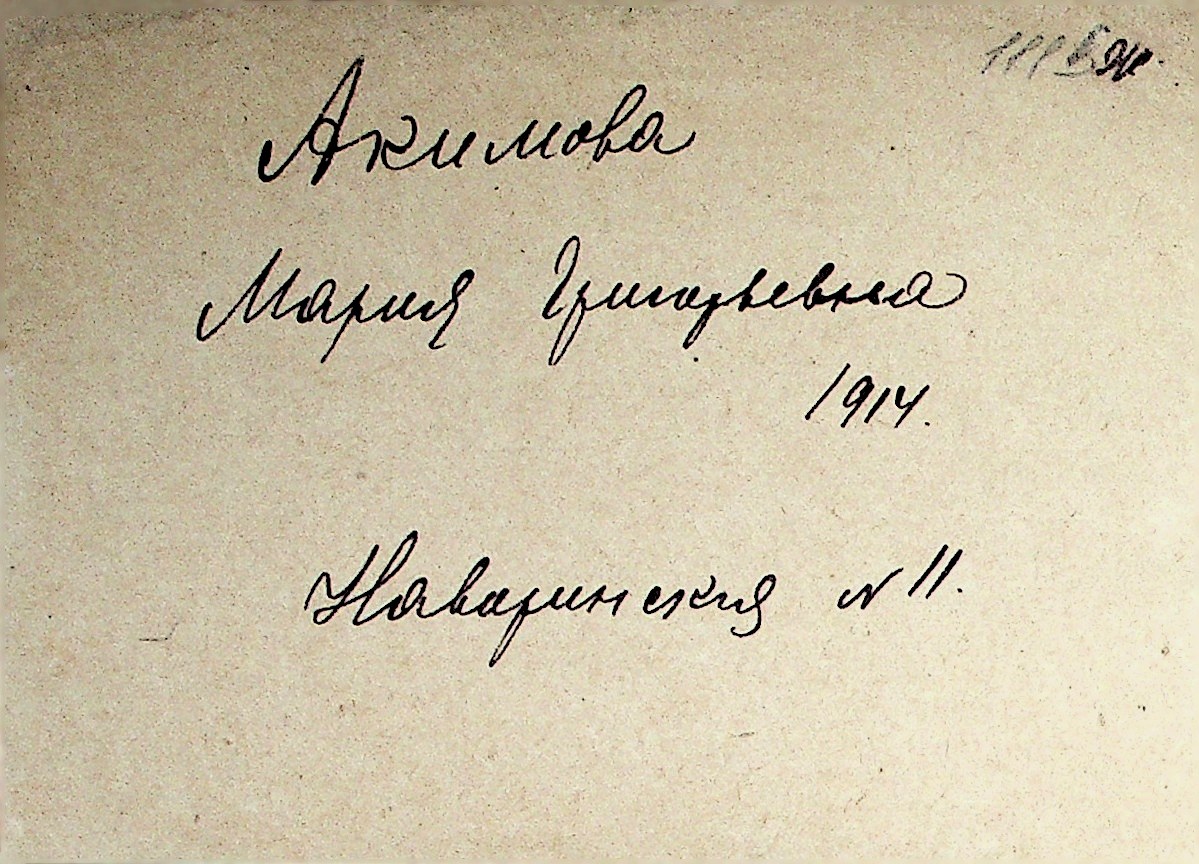 Акимова
Мария Григорьевна
1914.
Наваринская N 11.